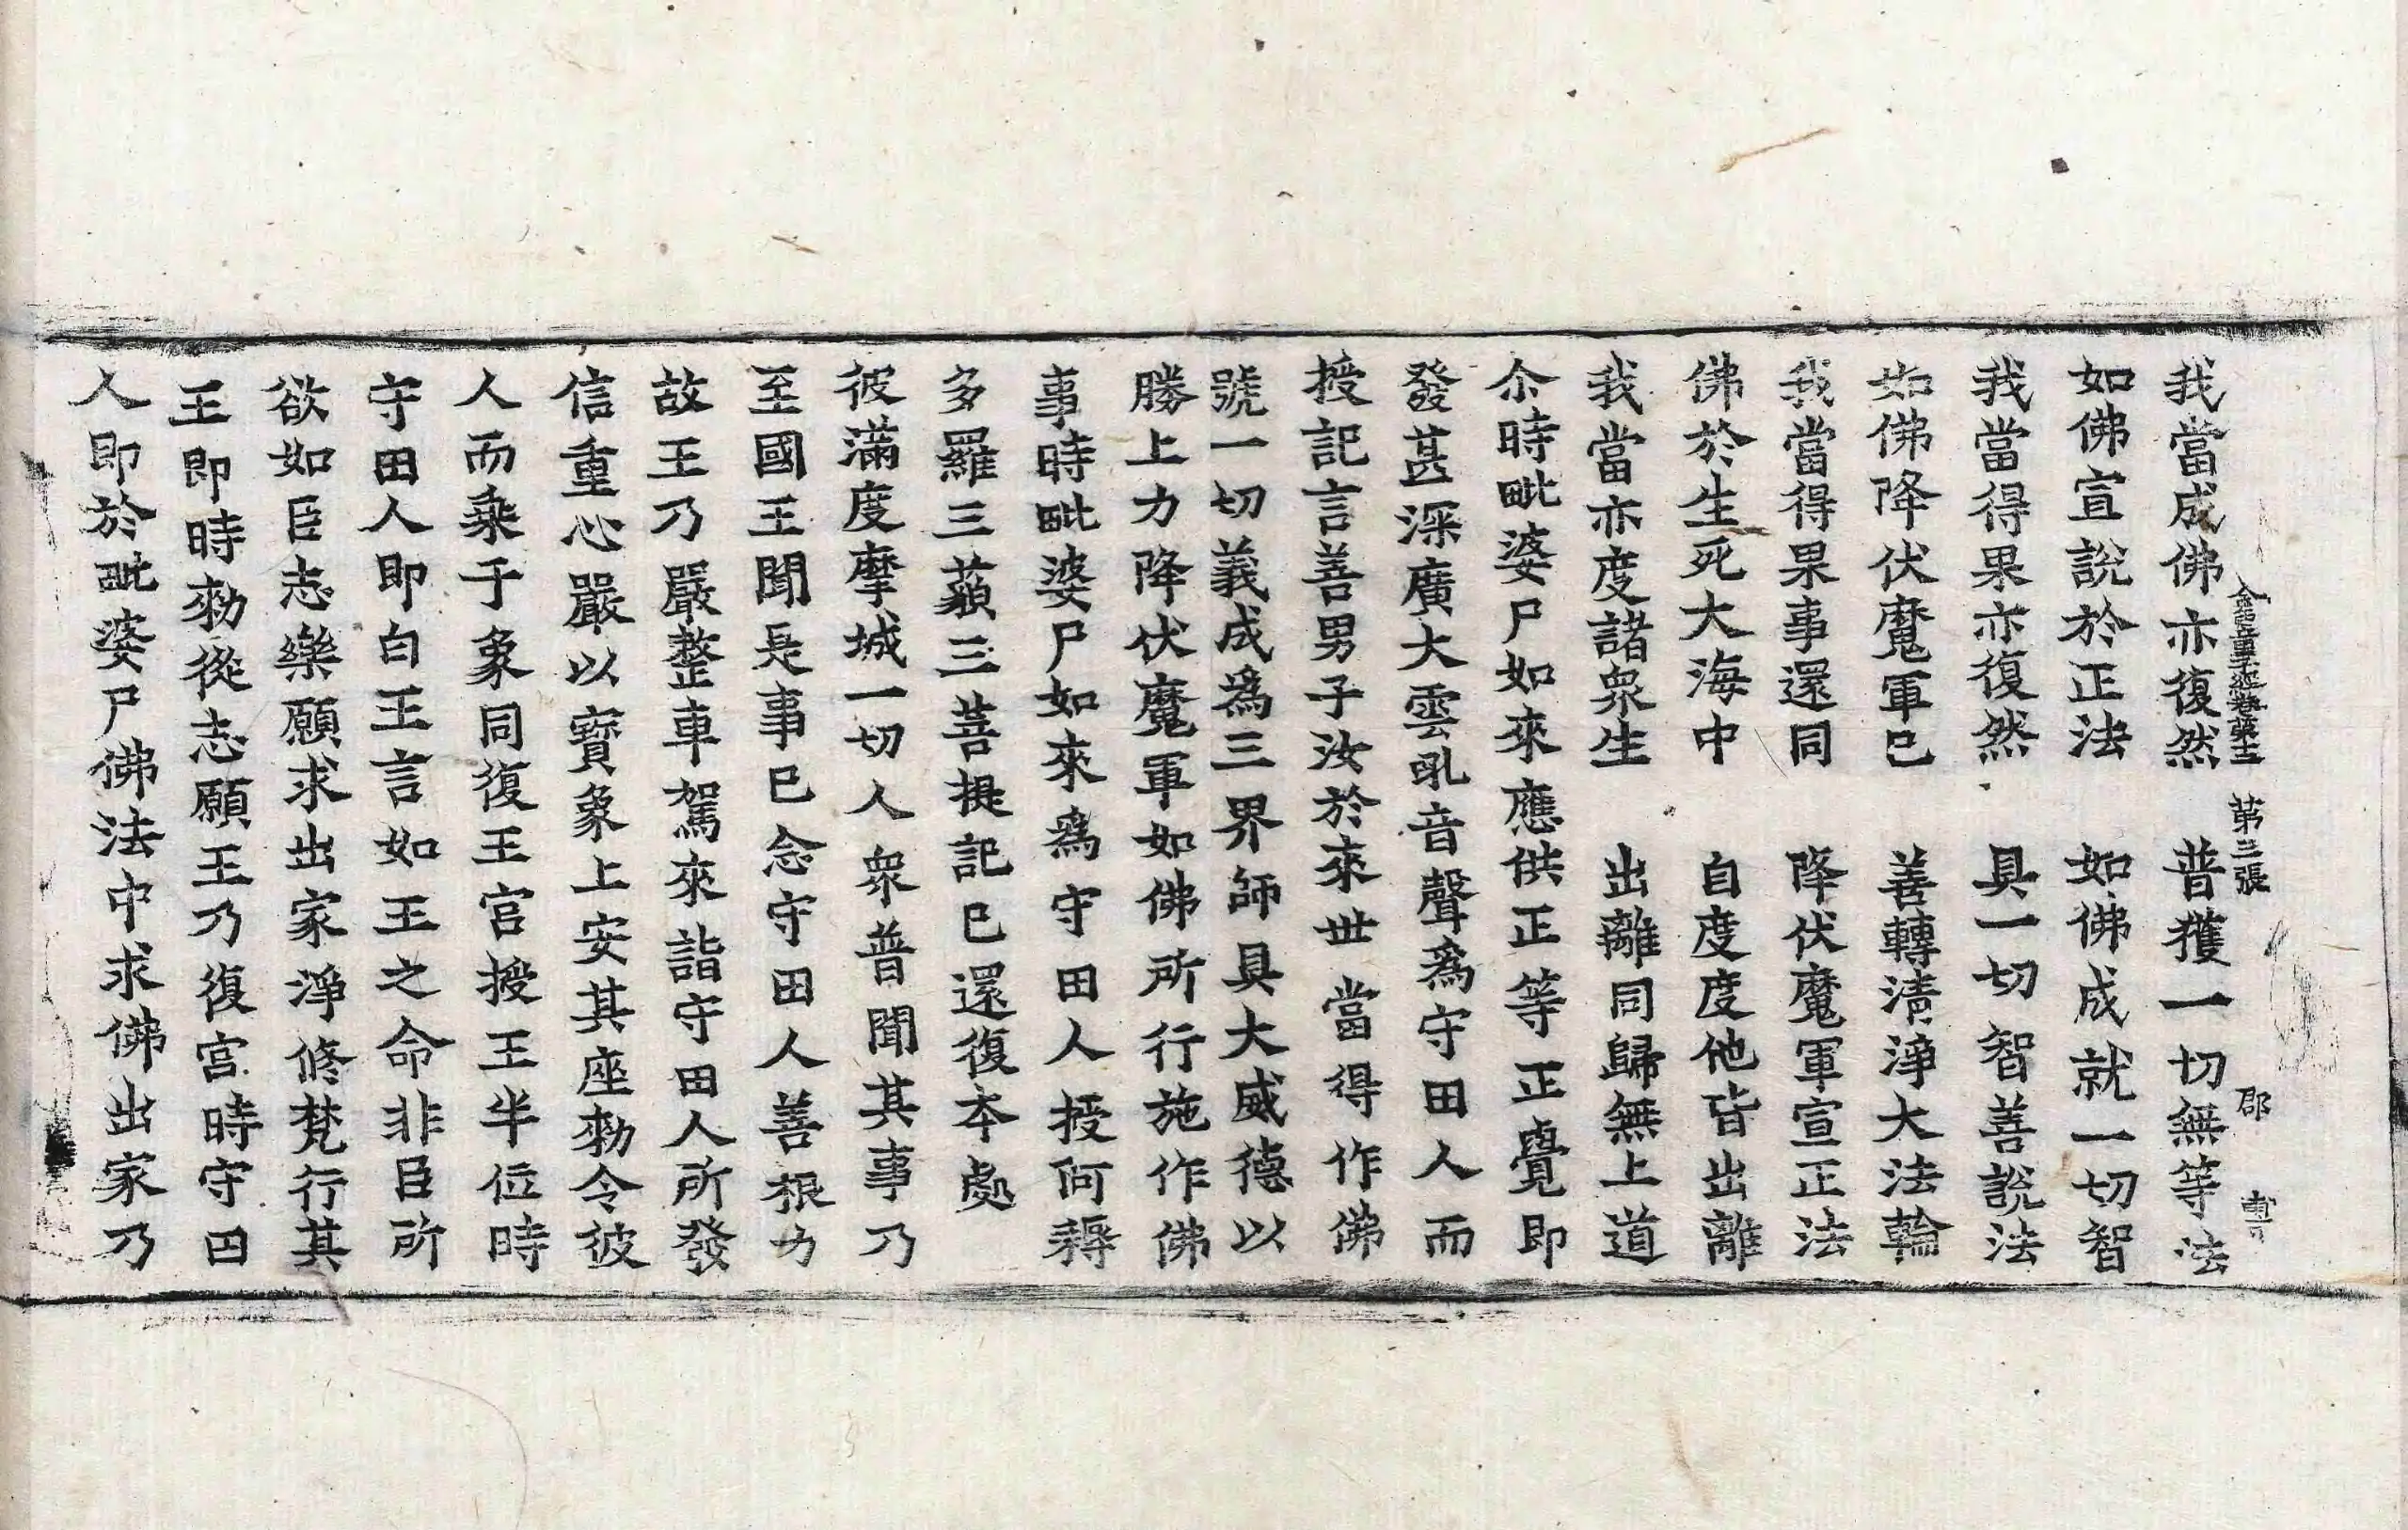 金光童子經卷第十二　第三張　郡
我當成佛亦復然　普獲一切無等法
如佛宣說於正法　如佛成就一切智
我當得果亦復然　具一切智善說法
如佛降伏魔軍已　善轉清淨大法輪
我當得果事還同　降伏魔軍宣正法
佛於生死大海中　自度度他皆出離
我當亦度諸衆生　出離同歸無上道
尒時毗婆尸如來應供正等正覺即
發甚深廣大雲吼音聲爲守田人而
授記言善男子汝於來世當得作佛
號一切義成爲三界師具大威德以
勝上力降伏魔軍如佛所行施作佛
事時毗婆尸如來爲守田人授阿耨
多羅三藐三菩提記已還復本處
彼滿度摩城一切人衆普聞其事乃
至國王聞是事已念守田人善根力
故王乃嚴整車駕來詣守田人所發
信重心嚴以寶象上安其座勑令彼
人而乘于象同復王宫授王半位時
守田人即白王言如王之命非臣所
欲如臣志樂願求出家淨修梵行其
王即時勑從志願王乃復宫時守田
人即於毗婆尸佛法中求佛出家乃